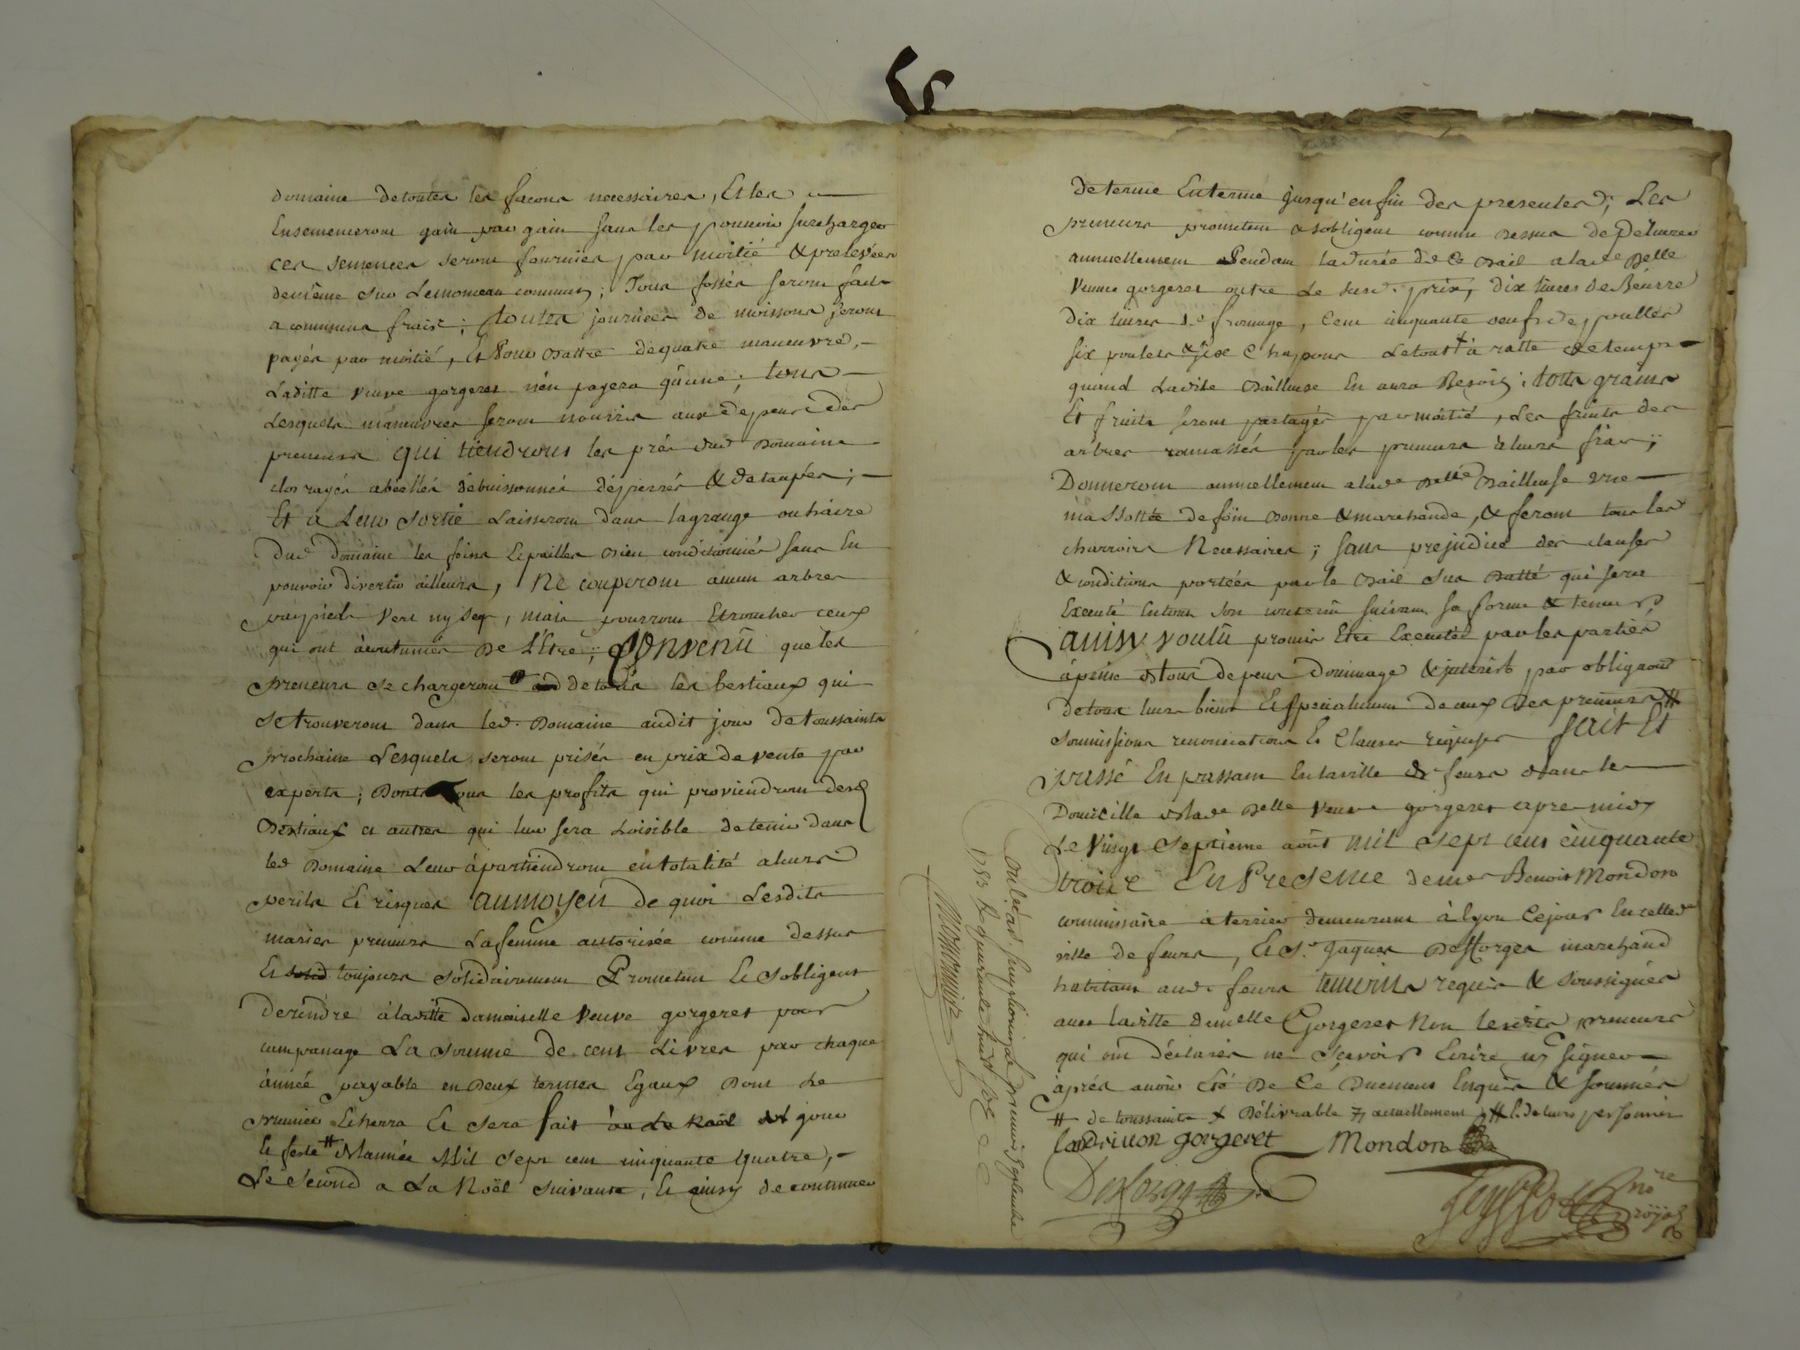 domaine de toutes les facons necessaires, Et les
Ensemenceront gain par gain sans les pouvoir surcharger
ces semences seront fournies par moitié & prelevées
de même sur Lemonceau commun; Tous fossés seront faits
a communs frais; toutes journées de moissons seront
payés par moitié, Et Pour battre de quatre maneuvre,
Laditte veuve gorgeret n'en payera qu'une; tous
Lesquels maneuvres seront nourris aux depens des
preneurs qui tiendront les prés dud Domaine
clos rayés debuissonnés dépierrés & detaupés;
Et a Leur sortie Laisseront dans la grange ou
Dud Domaine les foins Et pailles bien conditionnés sans En
pouvoir divertir ailleurs, Ne couperont aucun arbres
par pieds vert ny seq, mais pourront Etroncher ceux
qui ont accutumés De L'Etre; Convenu que les
preneurs se chargeront # de tous les bestiaux qui
se trouveront dans led. Domaine audit jour de toussaints
prochaine Lesquels seront prisés en prix de vente par
experts; Dont tous les profits qui proviendront desd
Bestiaux et autres qui leur sera Loisible de tenir dans
led Domaine Leur apartiendront en totalité a leurs
perils Et risques au moyen de quoi Lesdits
mariés preneurs La femme autorisée comme dessus
Et toujours solidairement Promettent Et s'obligent
de rendre à laditte damoiselle veuve gorgeret pour
La somme de cent Livres par chaque
année payable en Deux termes Egaux Dont Le
premier Echerra Et sera fait jour
Et feste # de l'année Mil sept cent cinquante quatre,
Le second a La Noël suivante, Et ainsy de continuer
de terme En terme jusqu'en fin des presentes; Les
preneurs promettent & s'obligent comme dessus de Delivrer
annuellement Pendant la Durée de Ce Bail a lad Delle
veuve gorgeret outre Le susd. prix, dix livres de Beurre
Dix livres de fromage, Cent cinquante oeufs de poulles
six poulets & six Chapons Le tout à ratte de temps
quand Ladite Bailleuse En aura Besoin; tous grains
Et fruits seront partagés par moitié, Les fruits des
arbres ramassés par les preneurs à leurs frais;
Donneront annuellement a lad Delle Bailleuse une
massottée de foin bonne & marchande, & feront tous les
charrois Necessaires; sans prejudice des clauses
& conditions portées par le Bail sus Datté qui sera
Executé En tout son contenu suivant sa forme & teneur,
ainsy voulu promis Etre Executé par les parties
à peine de tous depens Dommage & interêts par obligaon
de tous leurs biens Et specialement de ceux Des preneurs #
soumissions renonciations Et Clauses requises fait Et
passé En passant En la ville de feurs dans le
Domicille de lad Delle veuve gorgeret apres midy
Le Vingt septieme août mil sept cens cinquante
trois & En Presence de me Benoit Mondon
commissaire a terrier demeurant à lyon Ce jour En cette
ville de feurs, Et S. Jaques Desforges marchand
habitant aud. feurs temoins requis & soussignés
avec laditte demelle Gorgeret Non lesdits preneurs
qui ont declarés ne Scavoir Ecrire ny signer
après avoir Eté De Ce Duement Enquis & sommés
# de toussaints + Délivrable annuellement # & de leurs personnes
Ladrivon gorgeret Mondon
Desforges
nore royal
premier septembre
1753